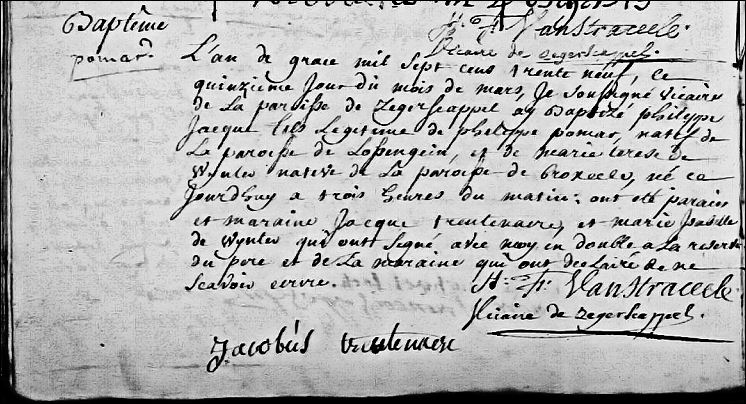 H: F Vanstraceele.
Baptême
Vicaire de Zegerscappel.
pomar
L'an de grace mil sept cens trente neuf, ce
quinzieme jour du mois de mars, je soussigné vicaire
de La paroisse de Zegerscappel ay Baptizé philippe
Jacque fils Legitime de philippe pomar, natif de
La paroisse de et de marie terese de
Wynter native de La paroisse de Broxeele, né ce
jourdhuy a trois heures du matin: ont été parain
et maraine Jacque trentenaire, et marie
de Wynter qui ont signé avec moy en double a La reserve
du pere et de La maraine qui ont declaré de ne
scavoir ecrire.
H: F: Vanstraceele
Vicaire de Zegerscappel.
Jacobus trentenaere